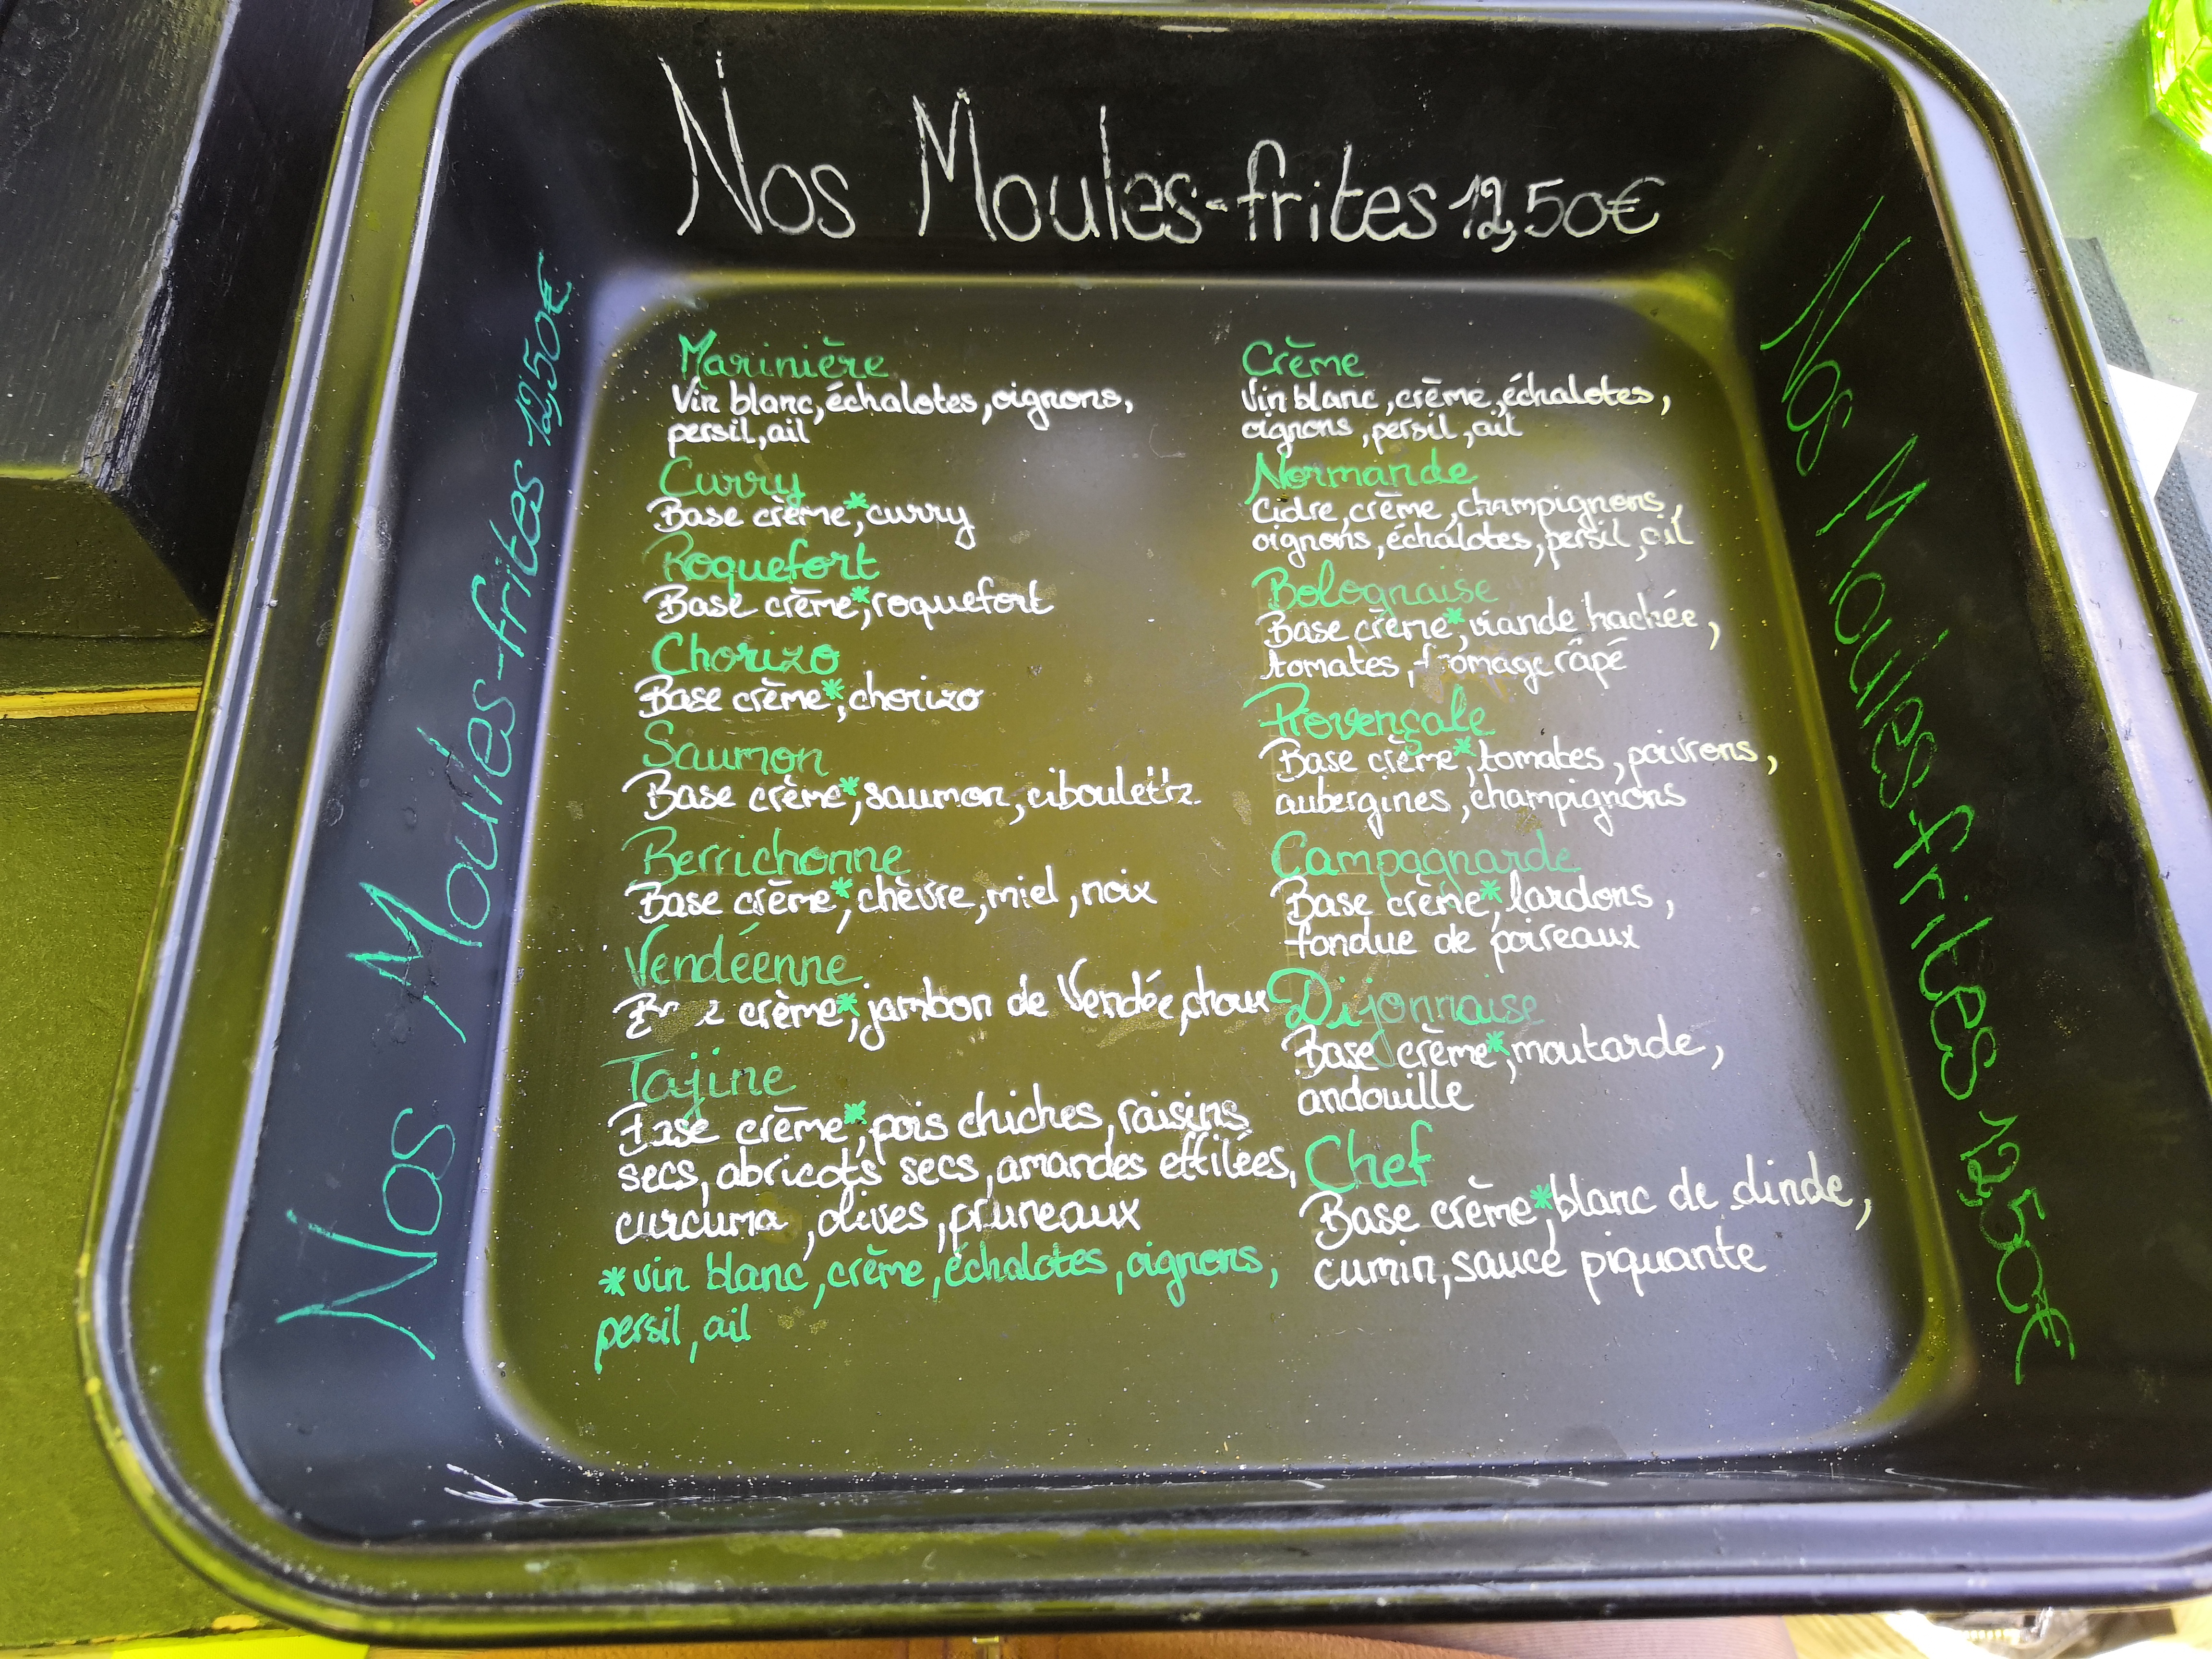 Nos Moules-frites 12,50€
Nos Moules-frites 12,50€
Marinière
Vin blanc, échalotes, oignons,
persil, ail
Curry
Base crème*, curry
Roquefort
Base crème*, roquefort
Chorizo
Base crème*, chorizo
Saumon
Base crème*, saumon, ciboulette
Berrichonne
Base crème*, chèvre, miel, noix
Vendéenne
Base crème*, jambon de Vendée, choux
Tajine
Base crème*, pois chiches, raisins
secs, abricots secs, amandes effilées,
curcuma, olives, pruneaux
*vin blanc, crème, échalotes, oignons,
persil, ail
Crème
Vin blanc, crème, échalotes,
oignons, persil, ail
Normande
Cidre, crème, champignons,
oignons, échalotes, persil, ail
Bolognaise
Base crème*, viande hachée,
tomates, fromage râpé
Provençale
Base crème*, tomates, poivrons,
aubergines, champignons
Campagnarde
Base crème*, lardons,
fondue de poireaux
Dijonnaise
Base crème*, moutarde,
andouille
Chef
Base crème*, blanc de dinde,
cumin, sauce piquante
Nos Moules-frites 12,50€